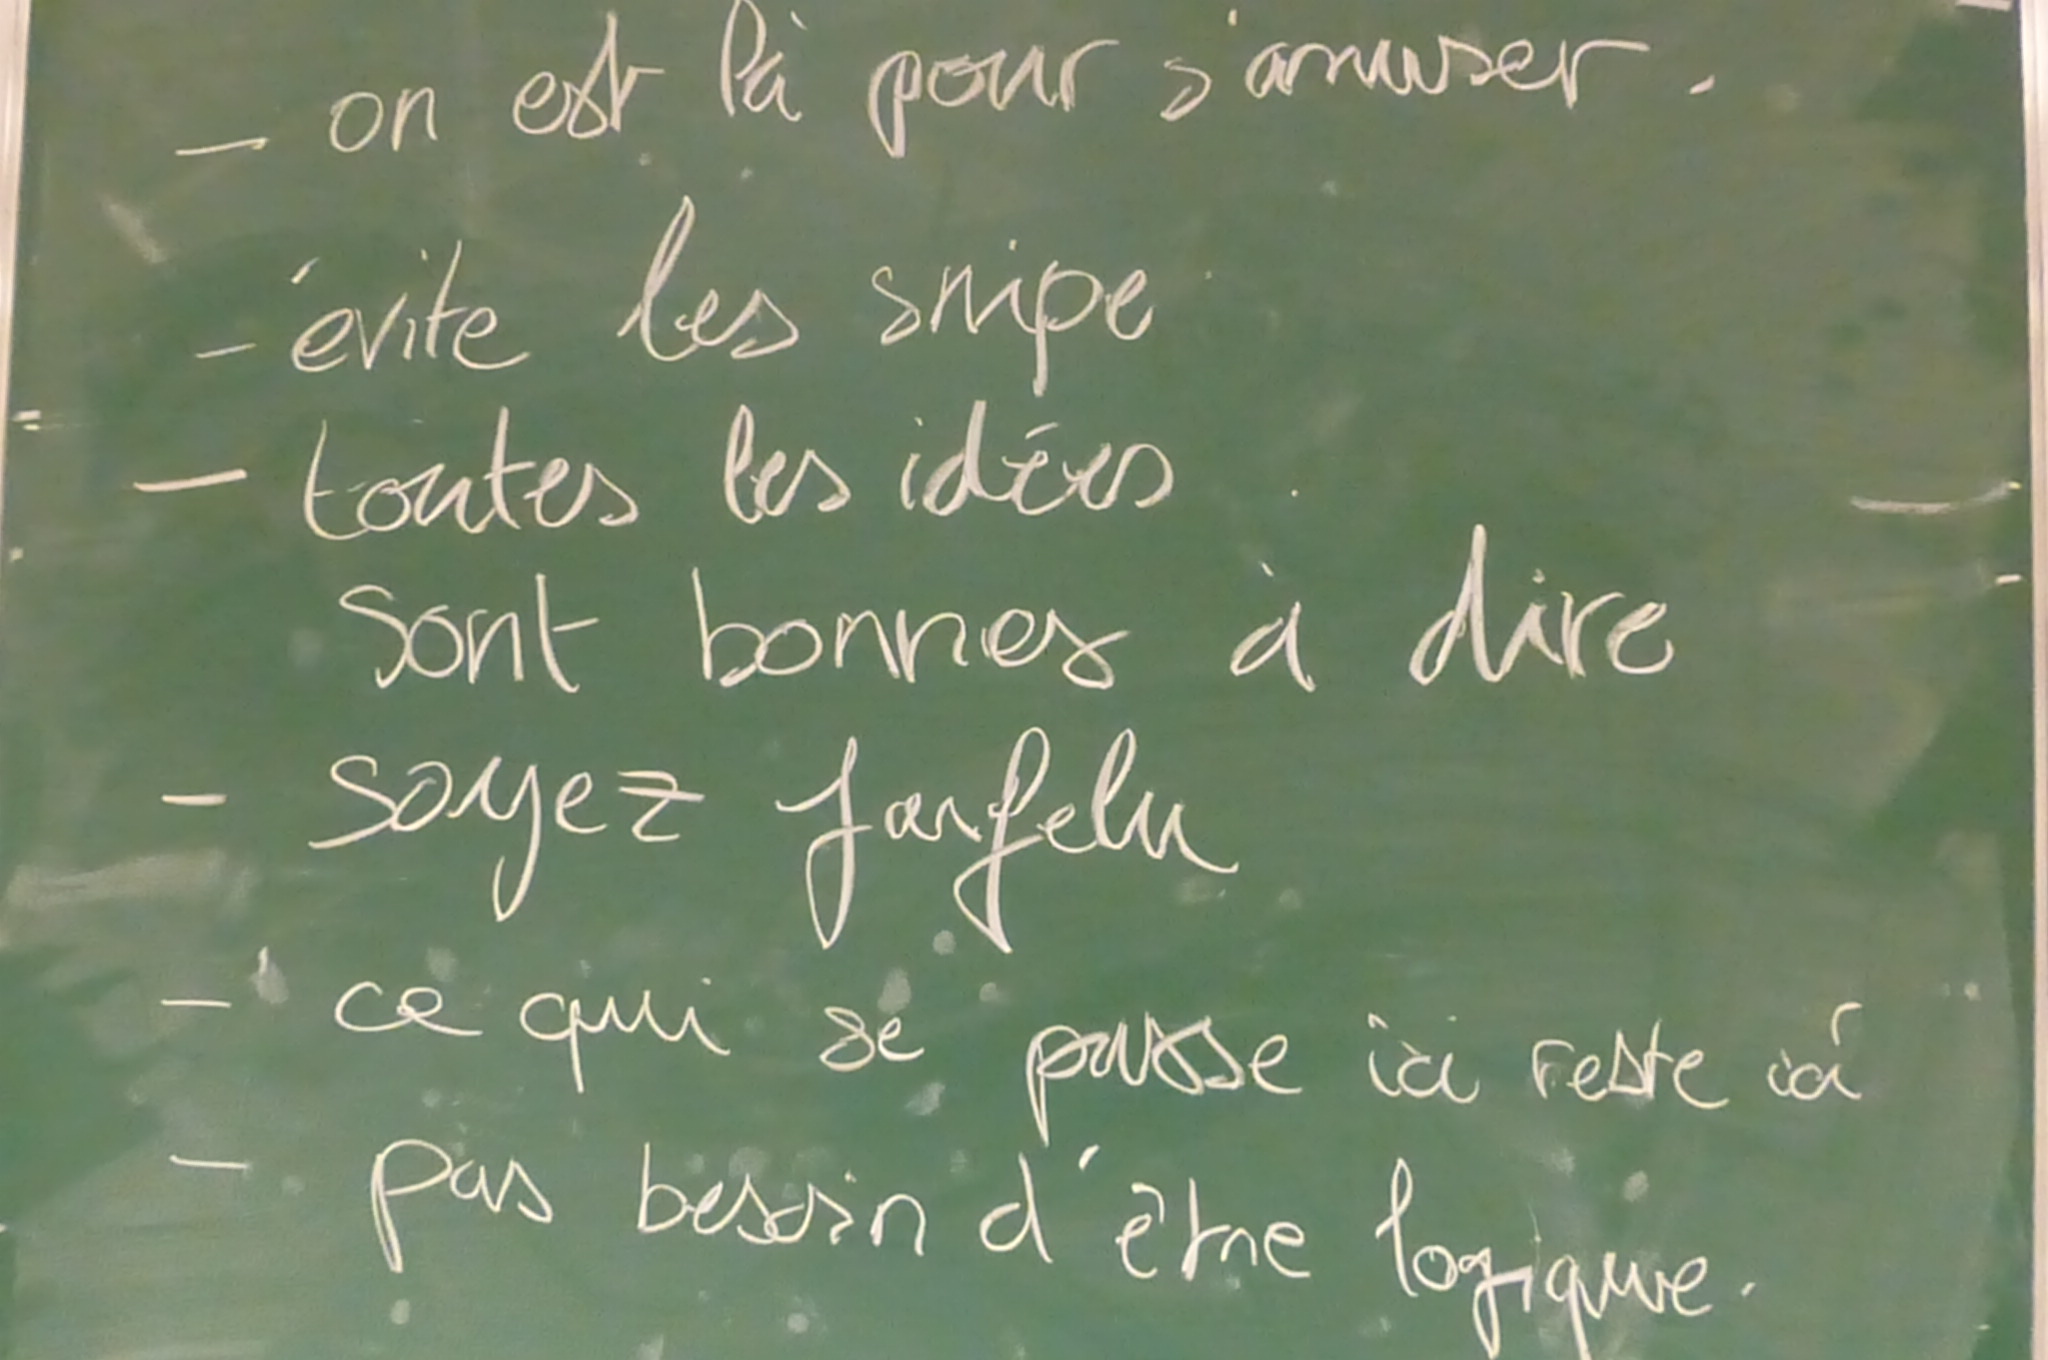 - on est là pour s'amuser.
- évite les snipe
- toutes les idées
sont bonnes à dire
- soyez farfelu
- ce qui se passe ici reste ici
- pas besoin d'être logique.